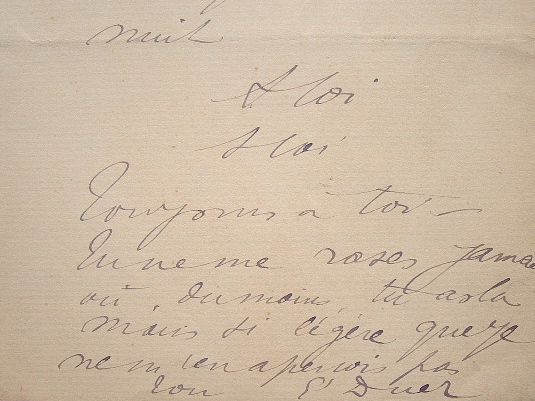 nuit
A toi
A toi
Toujours à toi —
Tu ne me rases jamais
ou, du moins, tu as la
main si légère que je
ne m'en aperçois pas
Ton